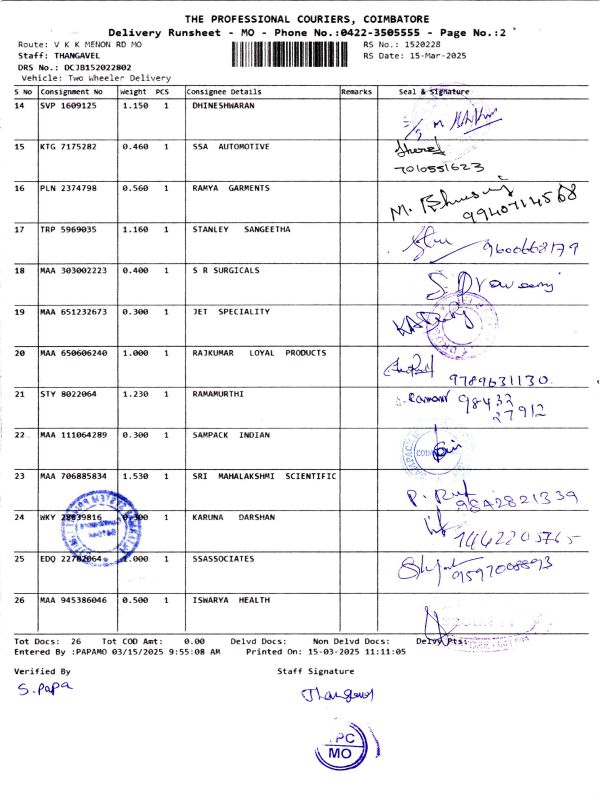 THE PROFESSIONAL COURIERS, COIMBATORE
Delivery Runsheet - MO - Phone No.:0422-3505555 - Page No.:2
Route: V K K MENON RD MO RS No.: 1520228
Staff: THANGAVEL RS Date: 15-Mar-2025
DRS No.: DCJB152022802
Vehicle: Two Wheeler Delivery
S No Consignment No Weight PCS Consignee Details Remarks Seal & Signature
14 SVP 1609125 1.150 1 DHINESHWARAN
15 KTG 7175282 0.460 1 SSA AUTOMOTIVE
7010551623
16 PLN 2374798 0.560 1 RAMYA GARMENTS
9940714568
17 TRP 5969035 1.160 1 STANLEY SANGEETHA
9600668179
18 MAA 303002223 0.400 1 S R SURGICALS
19 MAA 651232673 0.300 1 JET SPECIALITY
20 MAA 650606240 1.000 1 RAJKUMAR LOYAL PRODUCTS
9789631130
21 STY 8022064 1.230 1 RAMAMURTHI
98433
27912
22 MAA 111064289 0.300 1 SAMPACK INDIAN
23 MAA 706885834 1.530 1 SRI MAHALAKSHMI SCIENTIFIC
9842821339
24 WKY 28639816 0.300 1 KARUNA DARSHAN
25 EDQ 22782064 1.000 1 SSASSOCIATES
26 MAA 945386046 0.500 1 ISWARYA HEALTH
Tot Docs: 26 Tot COD Amt: 0.00 Delvd Docs: Non Delvd Docs: Delvy Pts:
Entered By :PAPAMO 03/15/2025 9:55:08 AM Printed On: 15-03-2025 11:11:05
Verified By Staff Signature
S. Papa
PC
MO